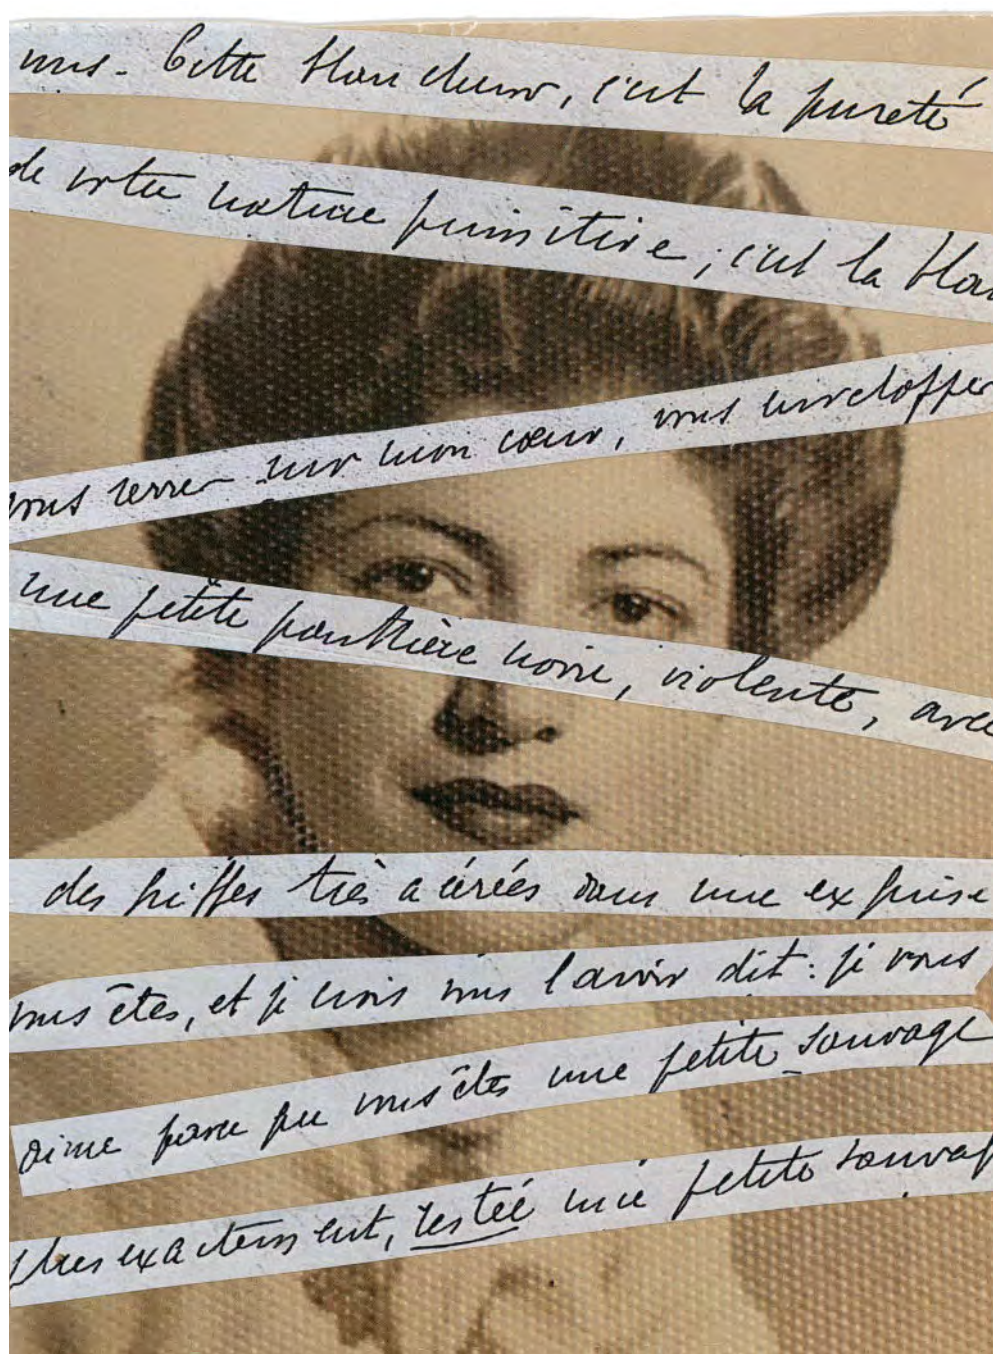 vous. Cette blancheur, c'est la pureté
de votre nature primitive ; c'est la blan
vous serrer sur mon cœur, vous envelopper
une petite panthère noire, violente, avec
des griffes très acérées dans une exquise
vous êtes, et je crois vous l'avoir dit : je vous
aime parce que vous êtes une petite sauvage
plus exactement, restée une petite sauvag